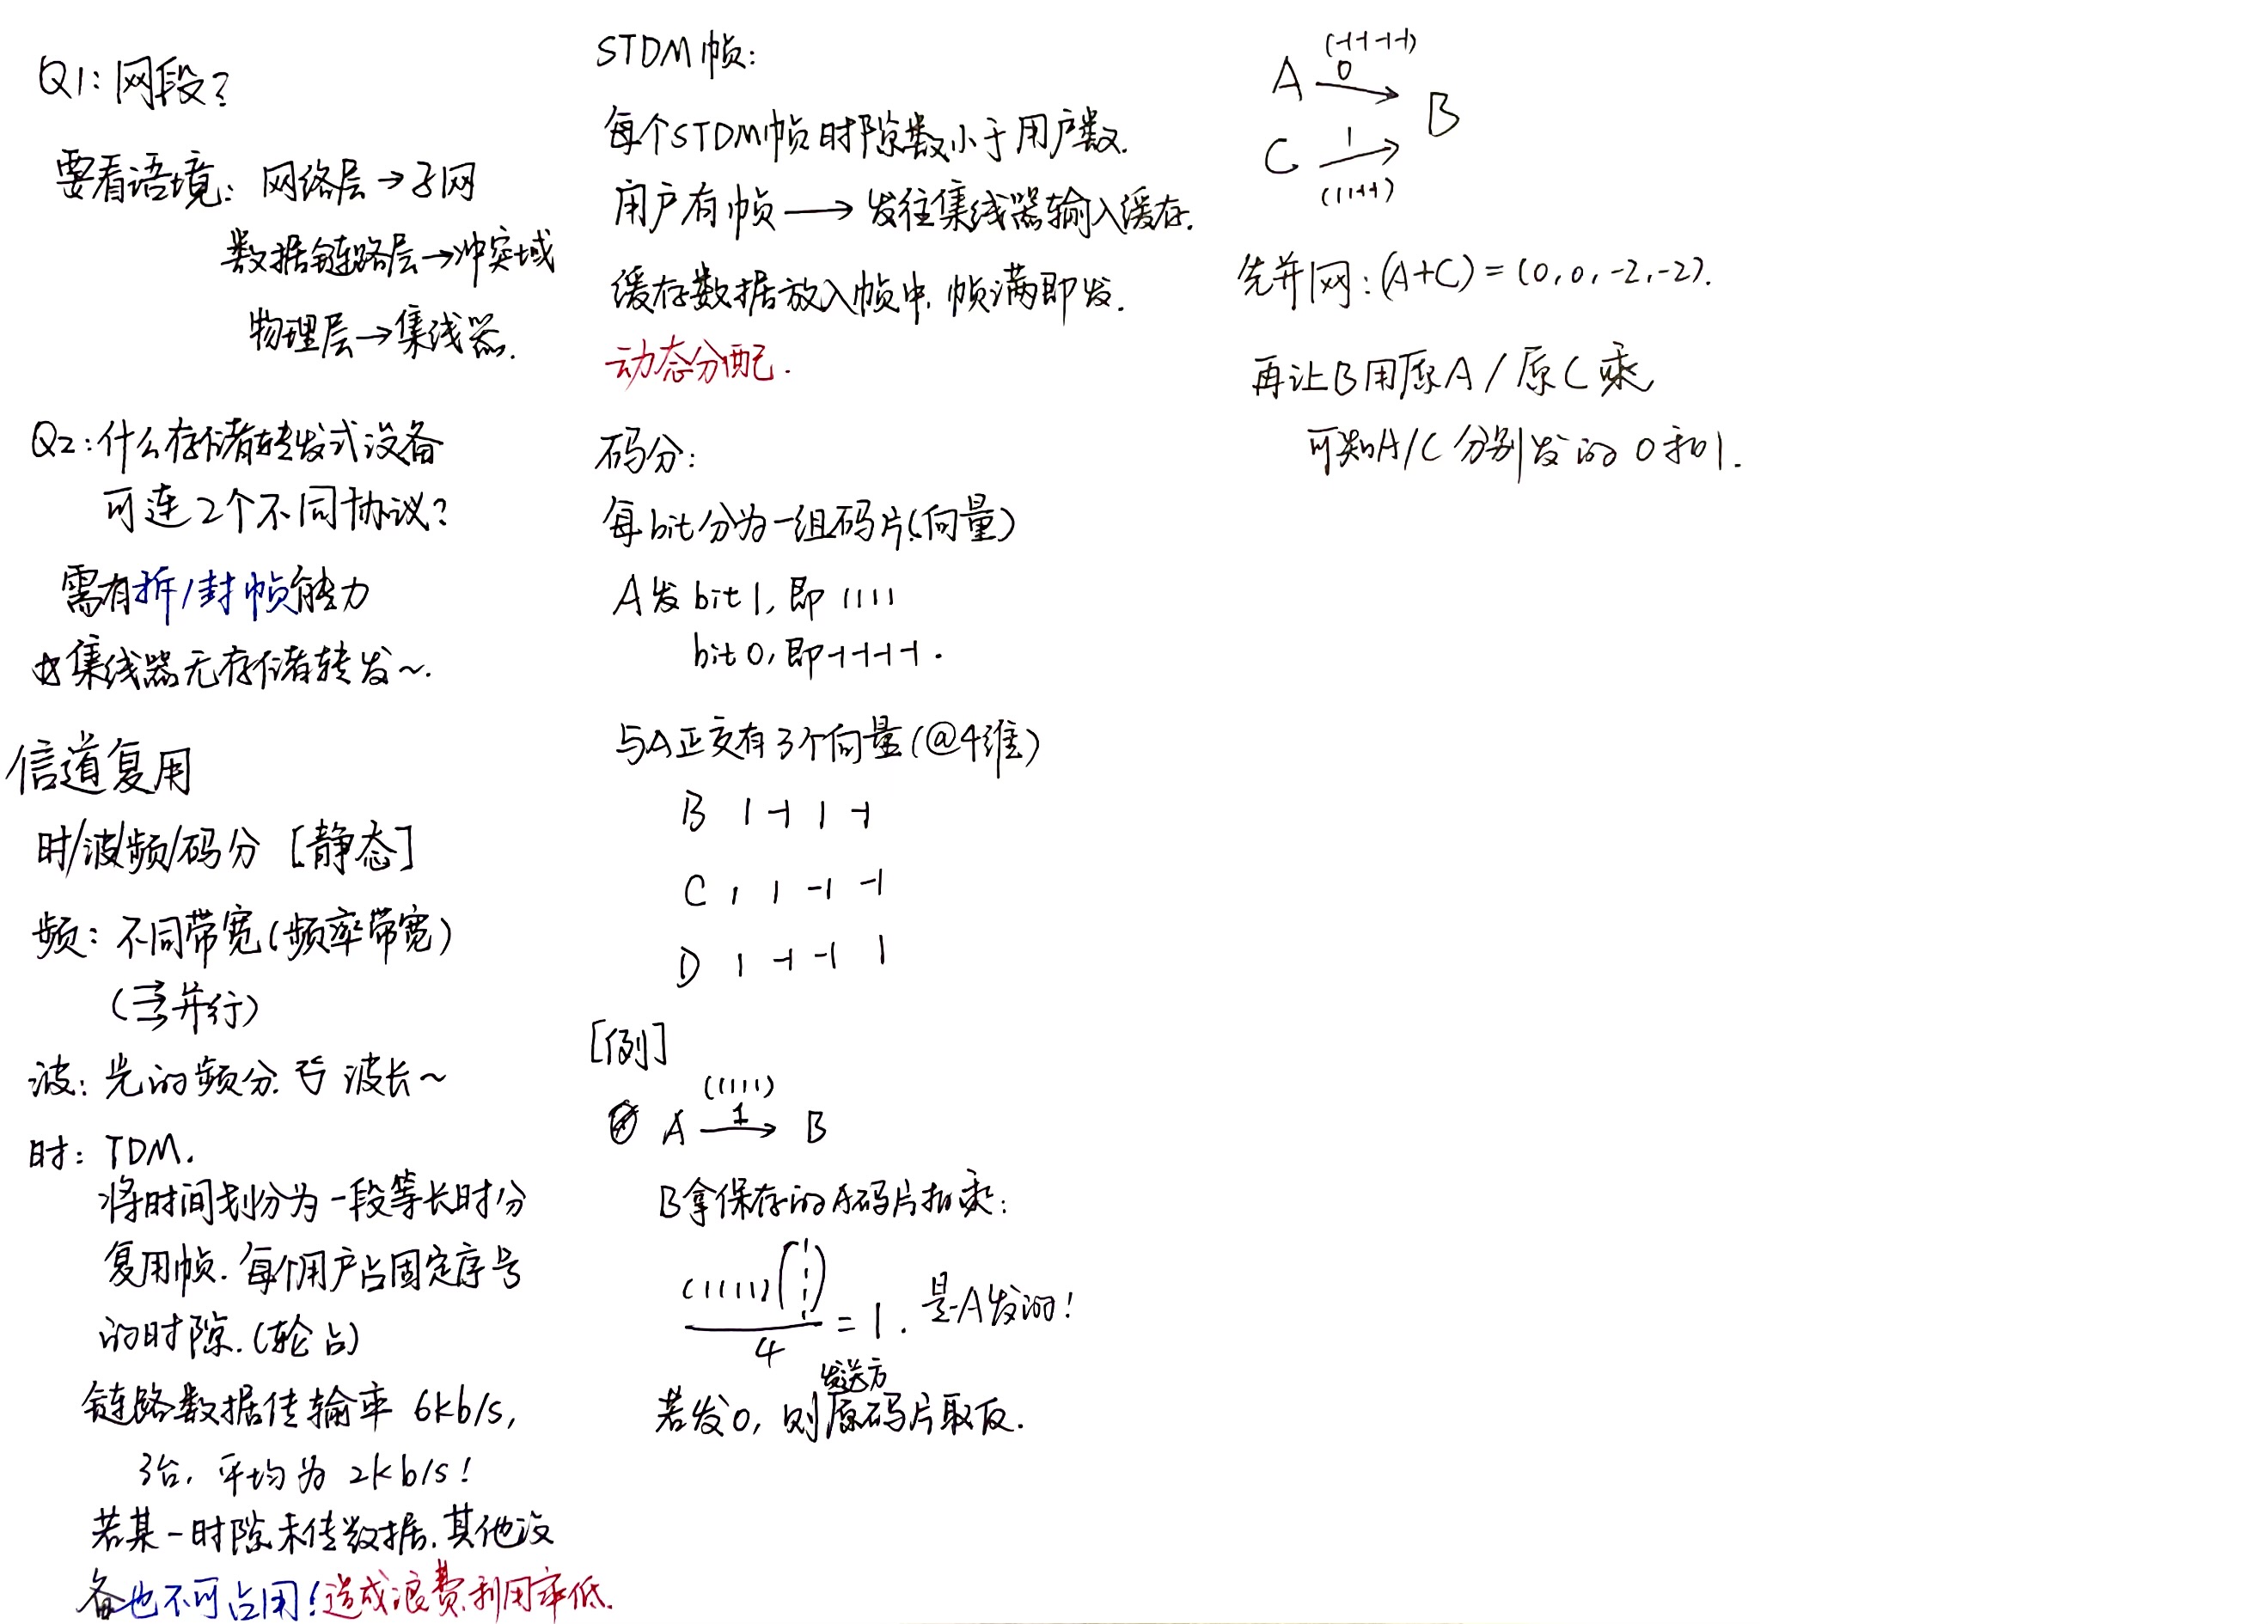 Q1: 网段?
要看语境: 网络层→子网
数据链路层→冲突域
物理层→集线器.
Q2: 什么存储转发式设备
可连2个不同协议?
需有拆/封帧能力
集线器无存储转发~.
信道复用
时/波/频/码分 [静态]
频: 不同带宽(频率带宽)
(并行)
波: 光的频分. 波长~
时: TDM.
将时间划分为一段等长时分
复用帧. 每个用户占固定序号
的时隙.(轮占)
链路数据传输率 6kb/s,
3台, 平均为 2kb/s!
若某一时隙未传数据, 其他设
备也不可占用! 造成浪费. 利用率低.
STDM帧:
每个STDM帧时隙数小于用户数.
用户有帧 → 发往集线器输入缓存.
缓存数据放入帧中, 帧满即发.
动态分配.
码分:
每bit分为一组码片(向量)
A发 bit1, 即 1111
bit0, 即-1-1-1-1.
与A正交有3个向量(@4维)
B 1 -1 1 -1
C 1 1 -1 -1
D 1 -1 -1 1
[例]
(1111)
A 1→ B
B拿保存的A码片相乘:
(1111)(1111)/4 = 1. 是A发的!
发送方
若发0, 则原码片取反.
(-1-1-1-1)
A 0→ B
C 1→
(11-1-1)
先并网: (A+C) = (0,0,-2,-2).
再让B用原A/原C乘
可知A/C分别发的0和1.